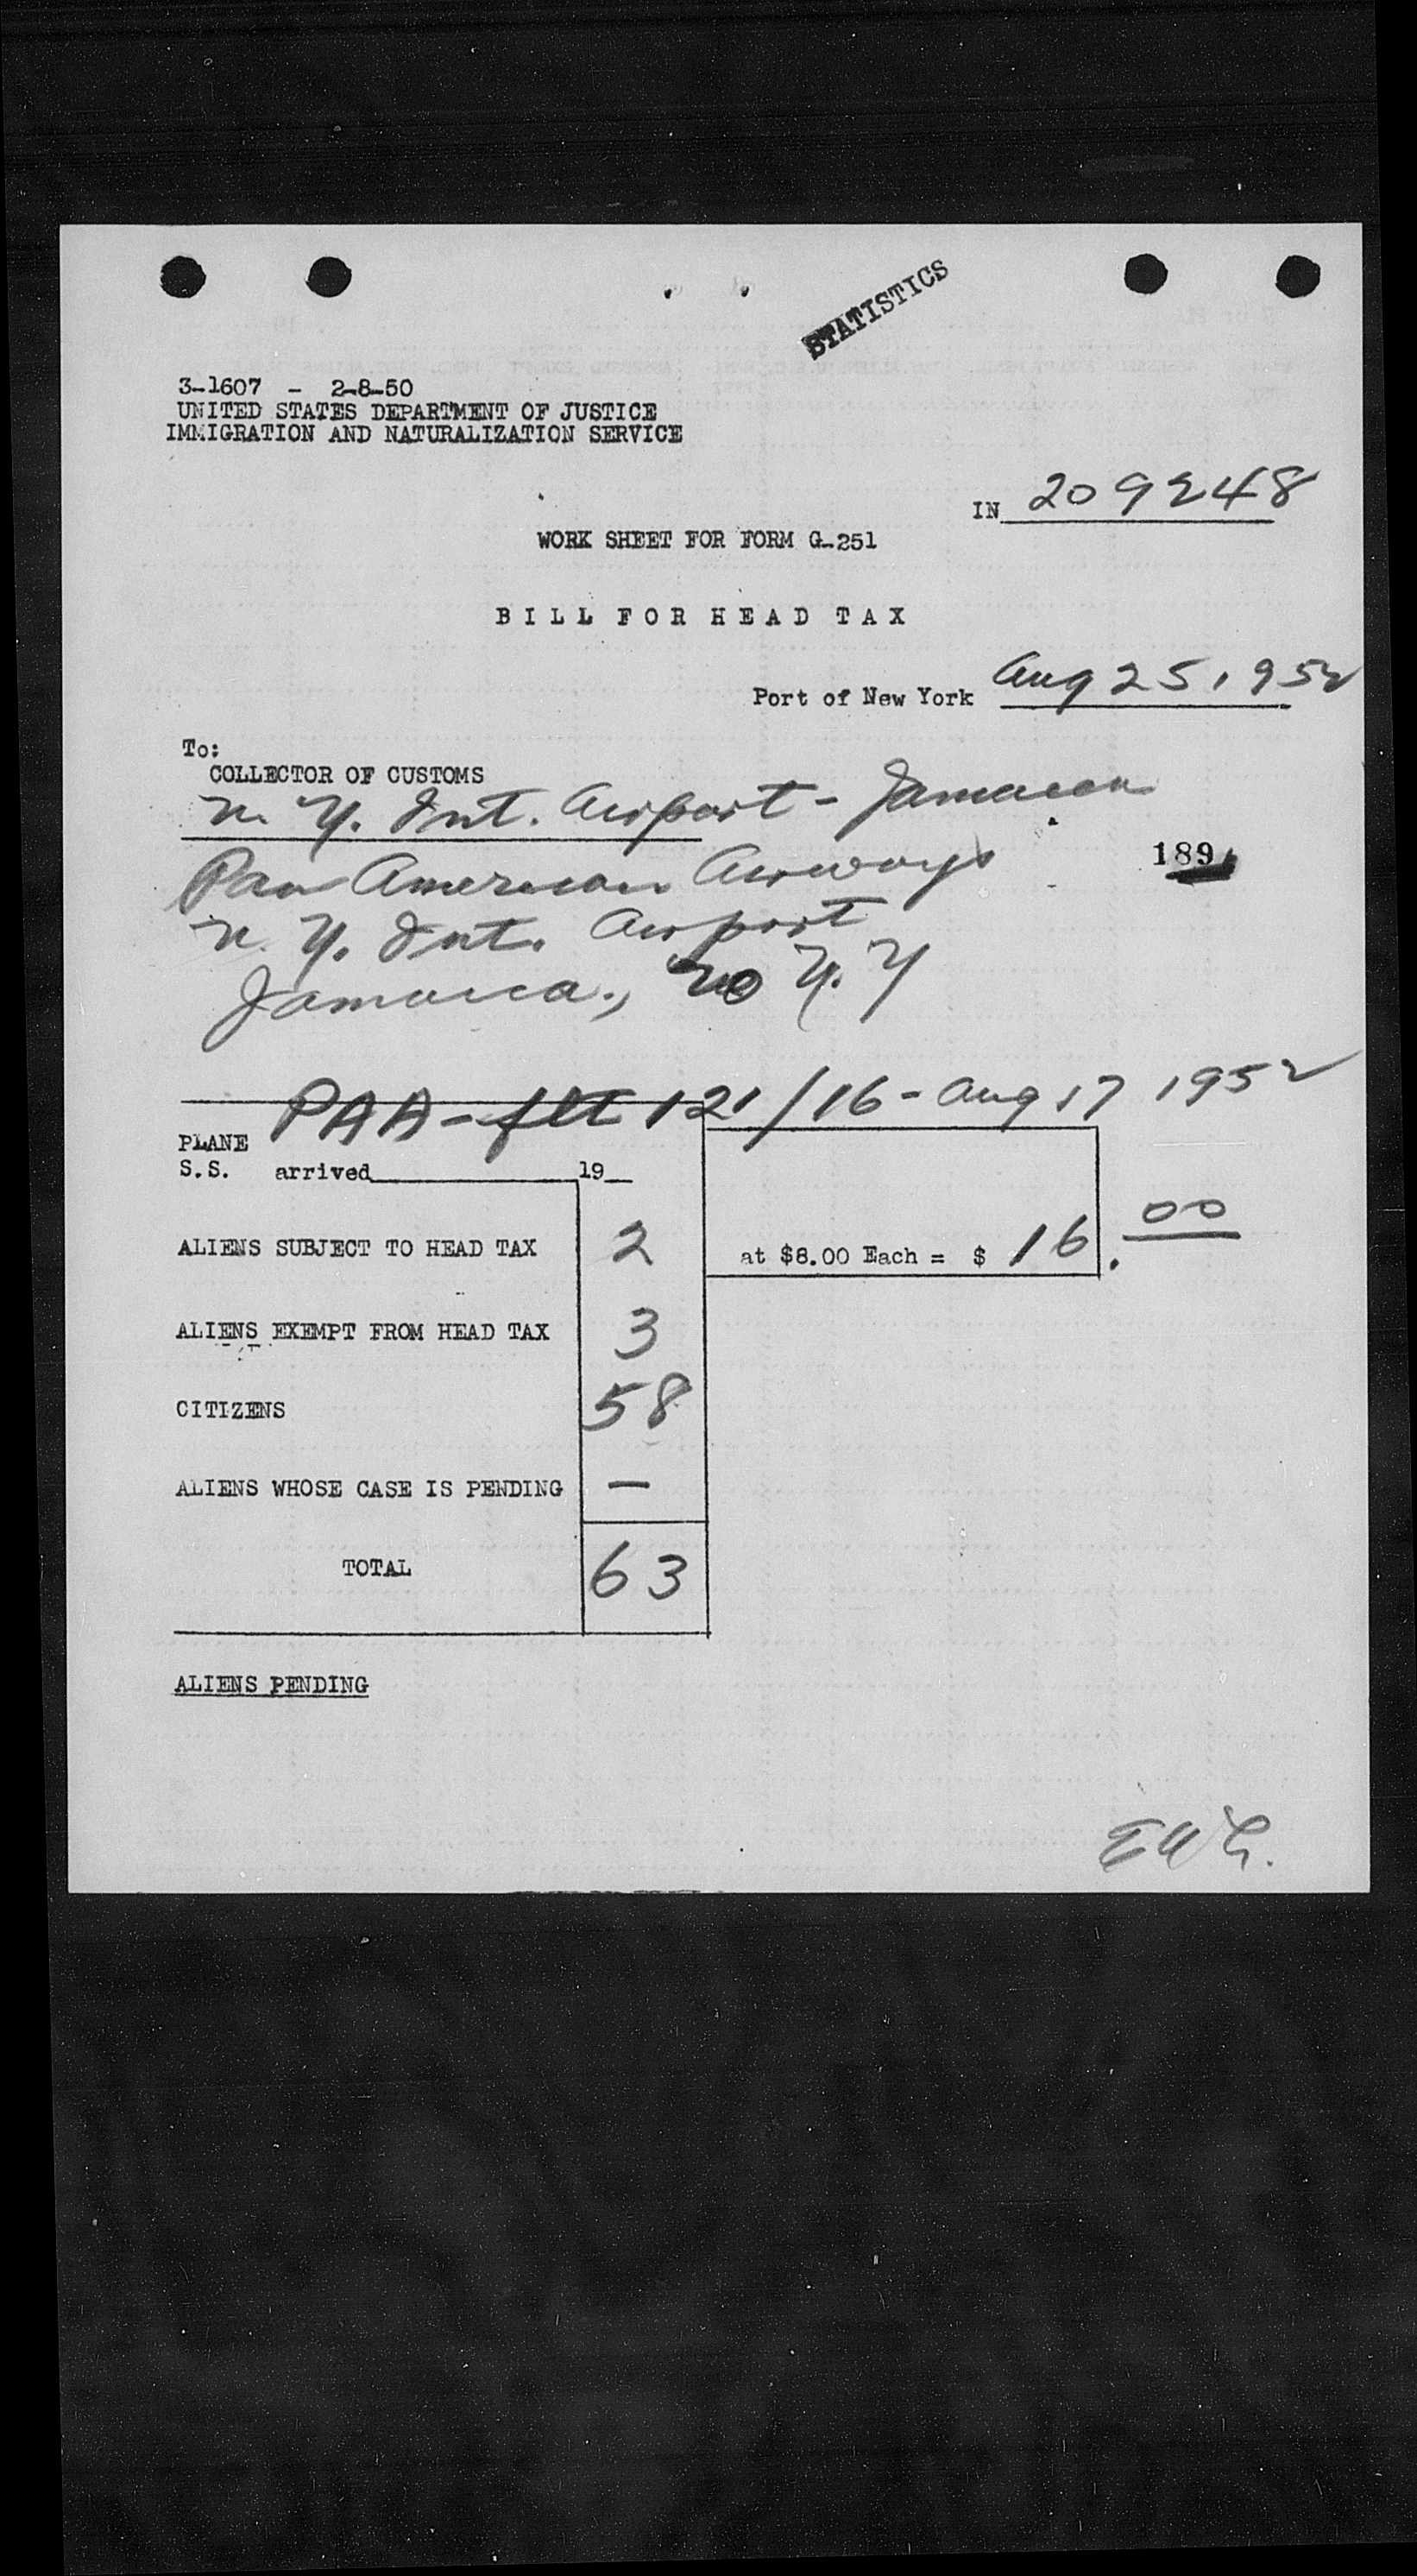 STATISTICS
3-1607 - 2-8-50
UNITED STATES DEPARTMENT OF JUSTICE
IMMIGRATION AND NATURALIZATION SERVICE
IN 209248
WORK SHEET FOR FORM G-251
BILL FOR HEAD TAX
Port of New York Aug 25, 1952
To:
COLLECTOR OF CUSTOMS
N. Y. Int. Airport - Jamaica
Pan American Airways
189
N. Y. Int. Airport
Jamaica, N. Y
PAA - flt 121/16 - Aug 17 1952
PLANE
S.S. arrived 19
ALIENS SUBJECT TO HEAD TAX 2 at $8.00 Each = $ 16.00
ALIENS EXEMPT FROM HEAD TAX 3
CITIZENS 58
ALIENS WHOSE CASE IS PENDING —
TOTAL 63
ALIENS PENDING